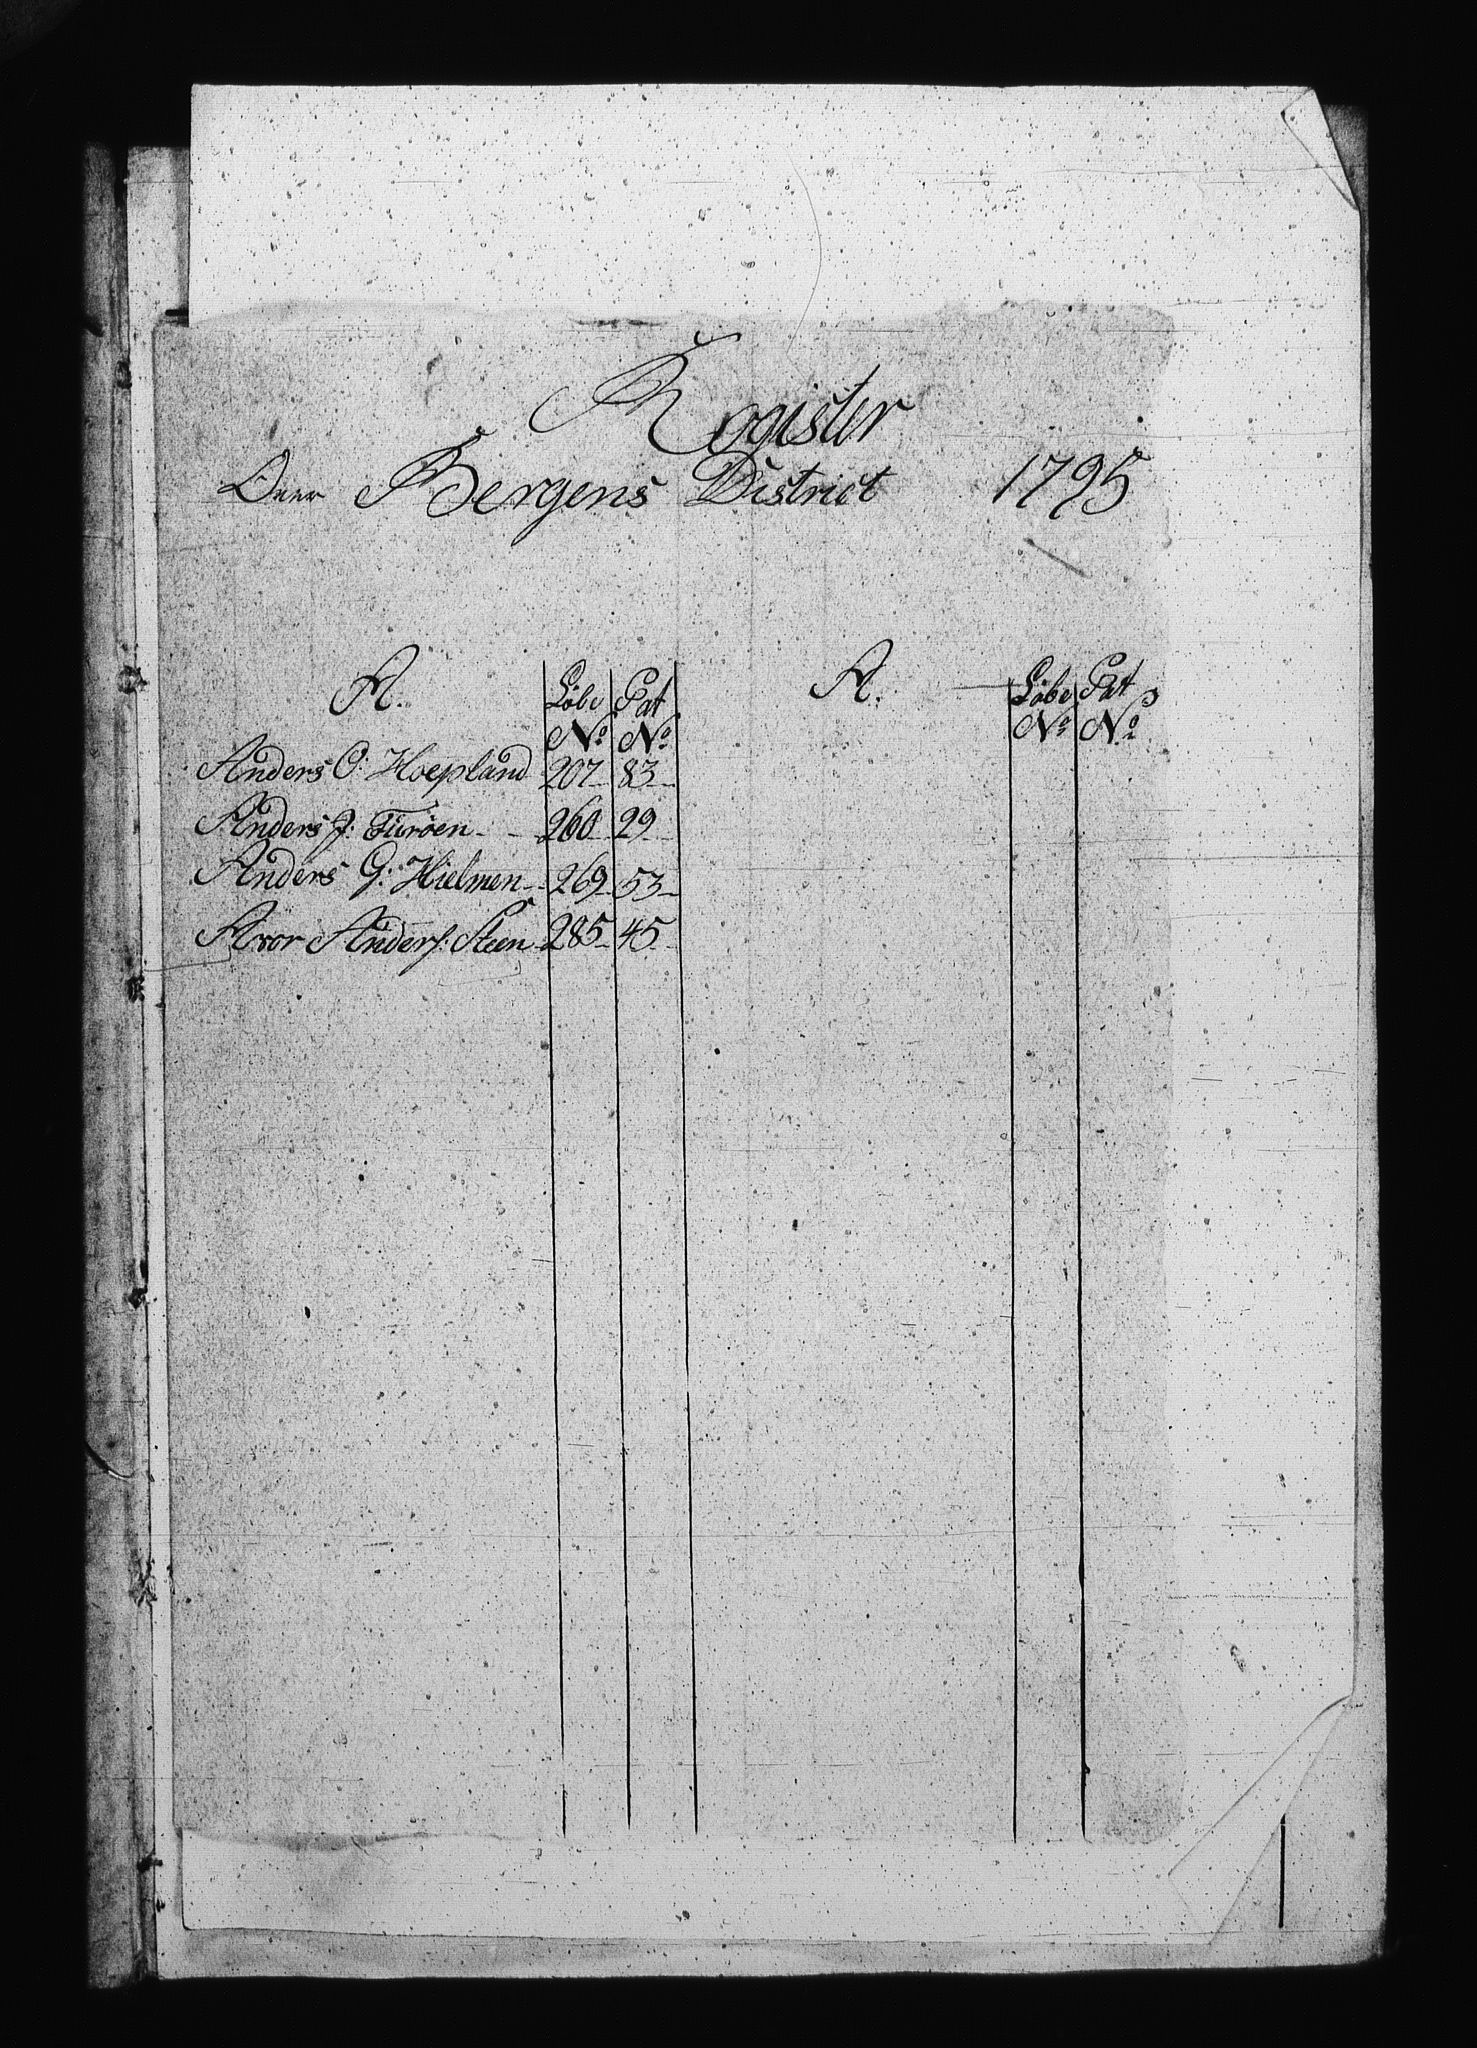 Register
Over Bergens District 1795
A. Løbe Pat A. Løbe Pat
No No No No
Anders O: Hoepland 207 83
Anders J: Turøen 260 29
Anders G: Hielmen 269 53
Anders: Steen 285 45